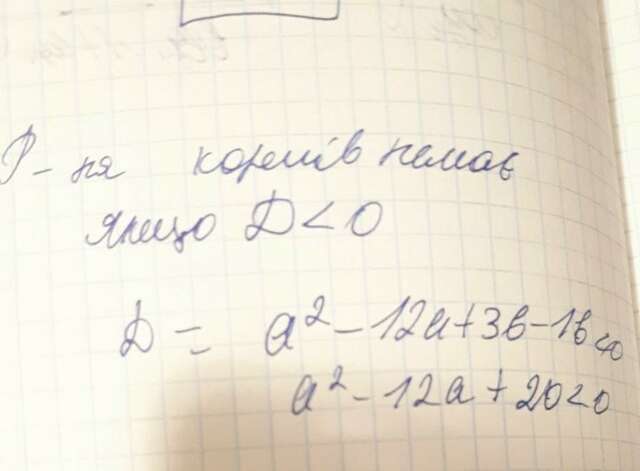 Р-ня коренів немає
якщо D<0
D = a² - 12a + 36 - 16 <0
a² - 12a + 20 <0